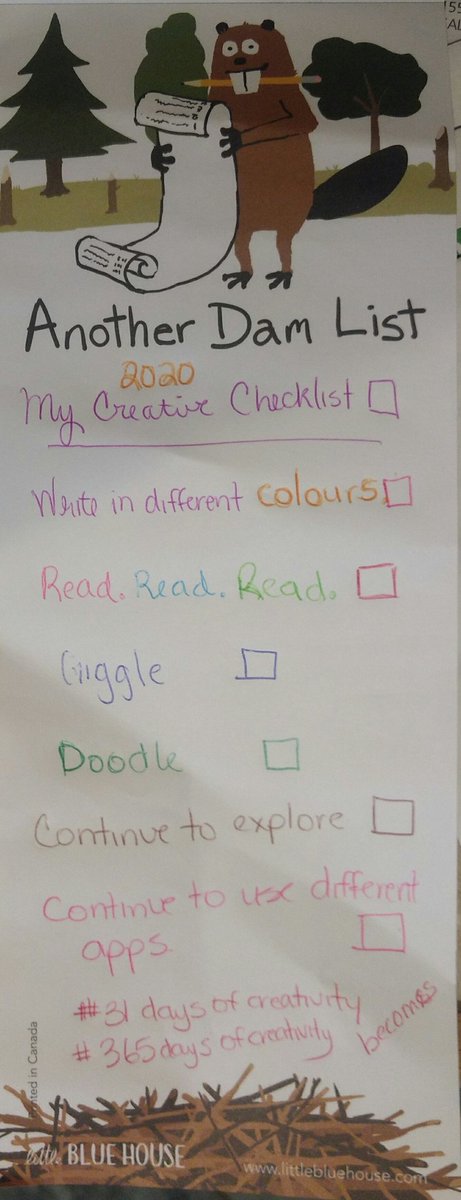 Another Dam List
2020
My Creative Checklist
Write in different colours
Read. Read. Read.
Giggle
Doodle
Continue to explore
Continue to use different
apps.
#31 days of creativity
becomes
#365 days of creativity
Printed in Canada
little BLUE HOUSE
www.littlebluehouse.com